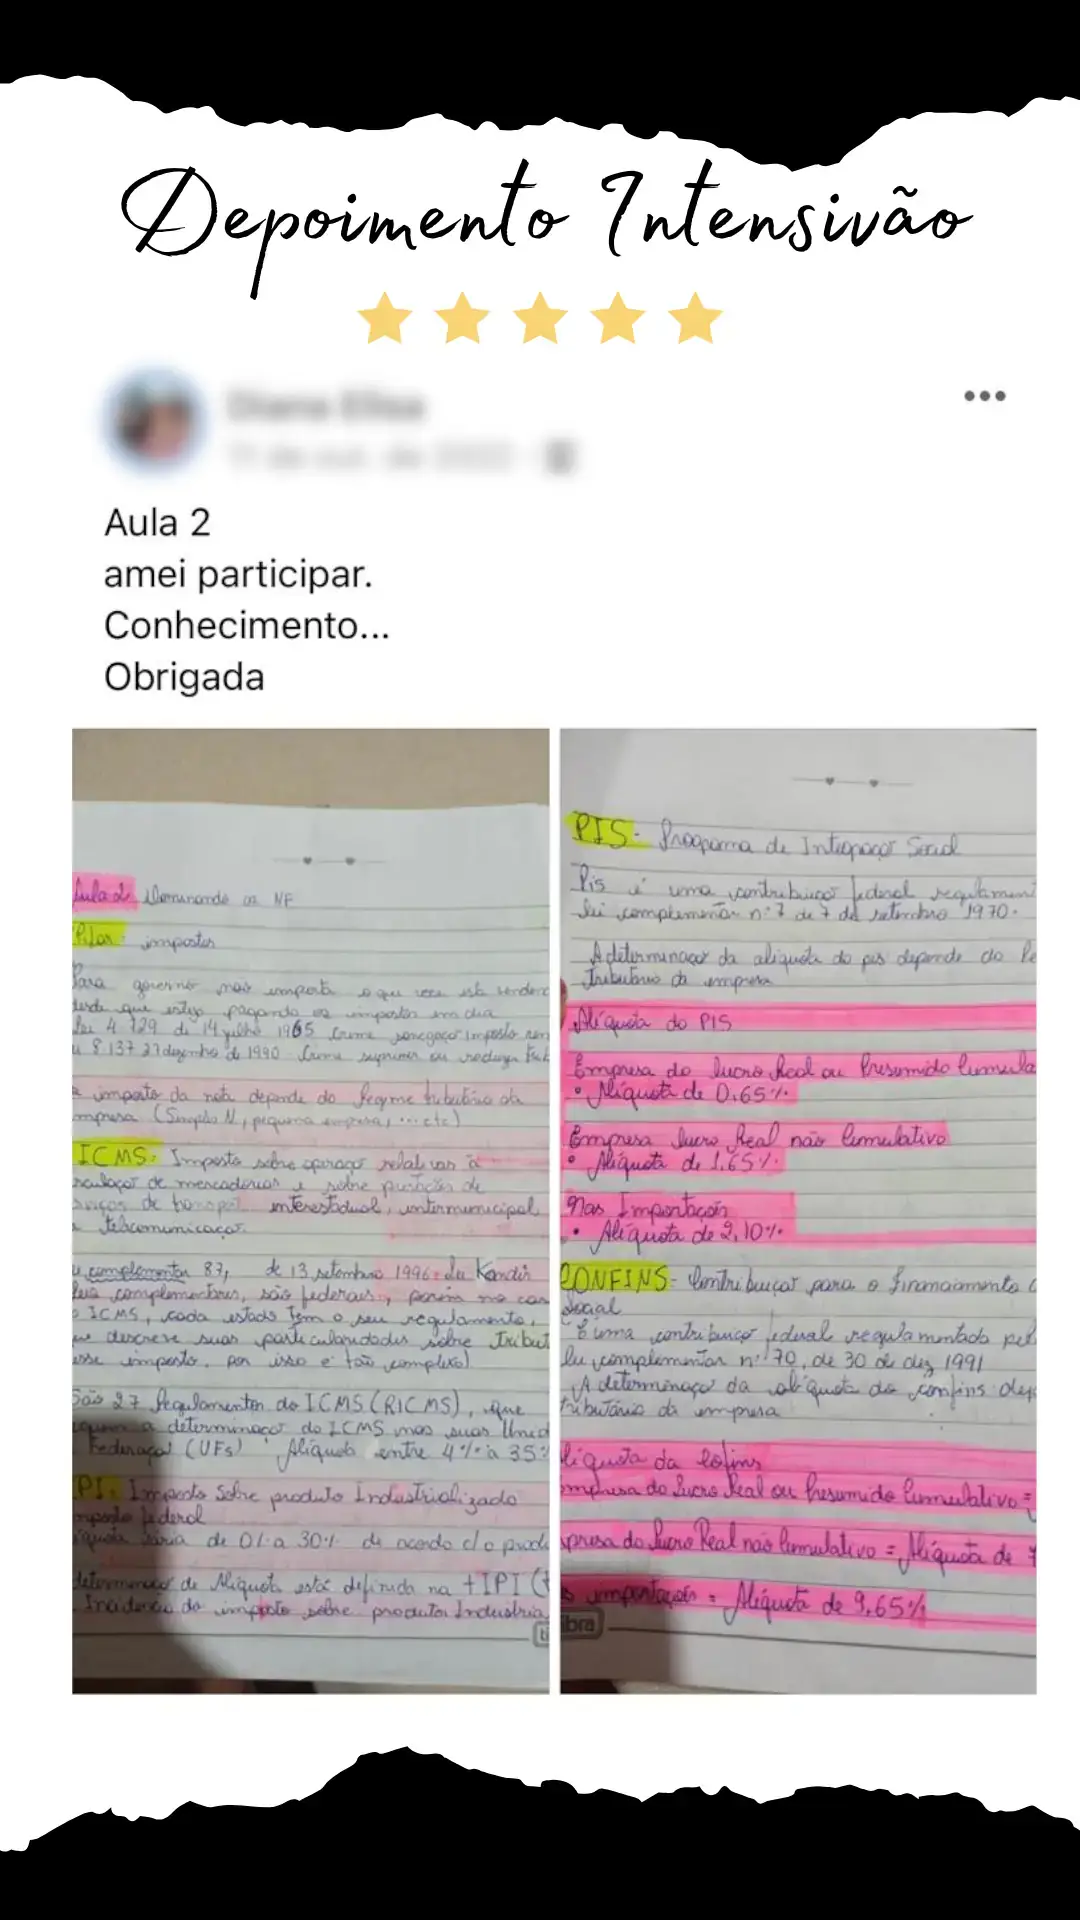 Depoimento Intensivão
Aula 2
amei participar.
Conhecimento...
Obrigada
Aula 2 Dominando as NF
Pilar: impostos
Para governo não importa o que voce está
desde que esteja pagando os impostos em dia
4 729 de 14 julho 1965 Crime sonegaçao imposto
8.137 27 dezembro de 1990. Crime suprimir ou reduzir
imposto da nota depende do Regime tributário da
(Simples N, pequena empresa, ... etc)
ICMS: Imposto sobre operaçao relativas à
de mercadorias e sobre prestações de
de transport interestadual, intermunicipal
telecomunicaçao.
complementar 87, de 13 setembro 1996 - Lei Kandir
complementares, são federais, porém no
ICMS, cada estado tem o seu regulamento,
descreve suas particularidades sobre
imposto, por isso é tão complexo)
São 27 Regulamentos do ICMS (RICMS), que
a determinaçao do ICMS nas suas
(UFs). Aliquota entre 4% à 35%
IPI: Imposto Sobre produto Industrializado
federal
varia de 0% a 30% de acordo c/o
de Aliquota está definida na TIPI
Incidencia do imposto sobre produtos
PIS - Programa de Integraçao Social
Pis é uma contribuiçao federal
lei complementar n:7 de 7 de setembro 1970.
A determinaçao da aliquota do pis depende do
tributário da empresa
Aliquota do PIS
Empresa do lucro Real ou Presumido
• Aliquota de 0,65%.
Empresa lucro Real não Cumulativo
• Aliquota de 1,65%.
Nas Importaçoes
• Aliquota de 2,10%.
CONFINS - Contribuiçao para o financiamento
social
É uma contribuiçao federal regulamentada
lei complementar n: 70, de 30 de dez 1991
A determinaçao da aliquota do confins
tributário da empresa
da Cofins
do Lucro Real ou Presumido Cumulativo =
do Lucro Real não Cumulativo = Aliquota de 7
importaçoes = Aliquota de 9,65%